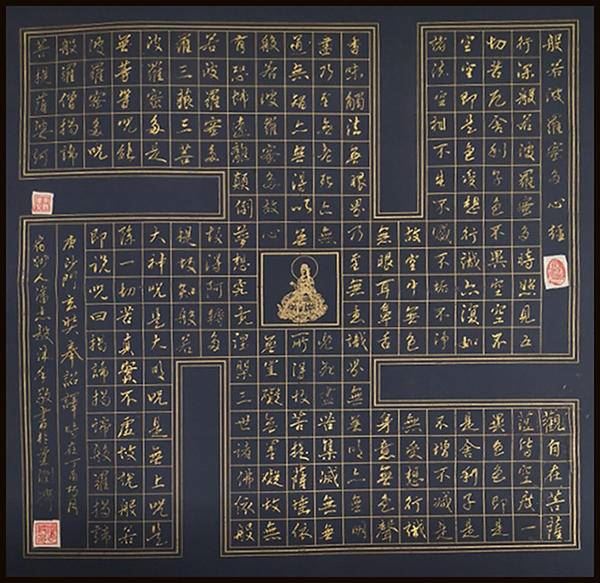 般若波羅蜜多心經
觀自在菩薩
行深般若波羅蜜多時照見五
蘊皆空度一
切苦厄舍利子色不異空空不
異色色即是
空空即是色受想行識亦復如
是舍利子是
諸法空相不生不滅不垢不淨
不增不減是
故空中無色
無受想行識
無眼耳鼻舌
身意無色聲
香味觸法無眼界乃至無意識界無無明亦無無明
盡乃至無老死亦無
老死盡無苦集滅
道無智亦無得以無
所得故菩提薩埵依
般若波羅蜜多故心
無罣礙無罣礙故無
有恐怖遠離顛倒夢想究竟涅槃三世諸佛依般
若波羅蜜多
故得阿耨多
羅三藐三菩
提故知般若
波羅蜜多是
大神咒是大明咒是無上咒是
無等等咒能
除一切苦真實不虛故說般若
波羅蜜多咒
即說咒曰揭諦揭諦般羅揭諦
般羅僧揭諦
菩提薩婆訶
唐沙門玄奘奉詔譯時在丁酉